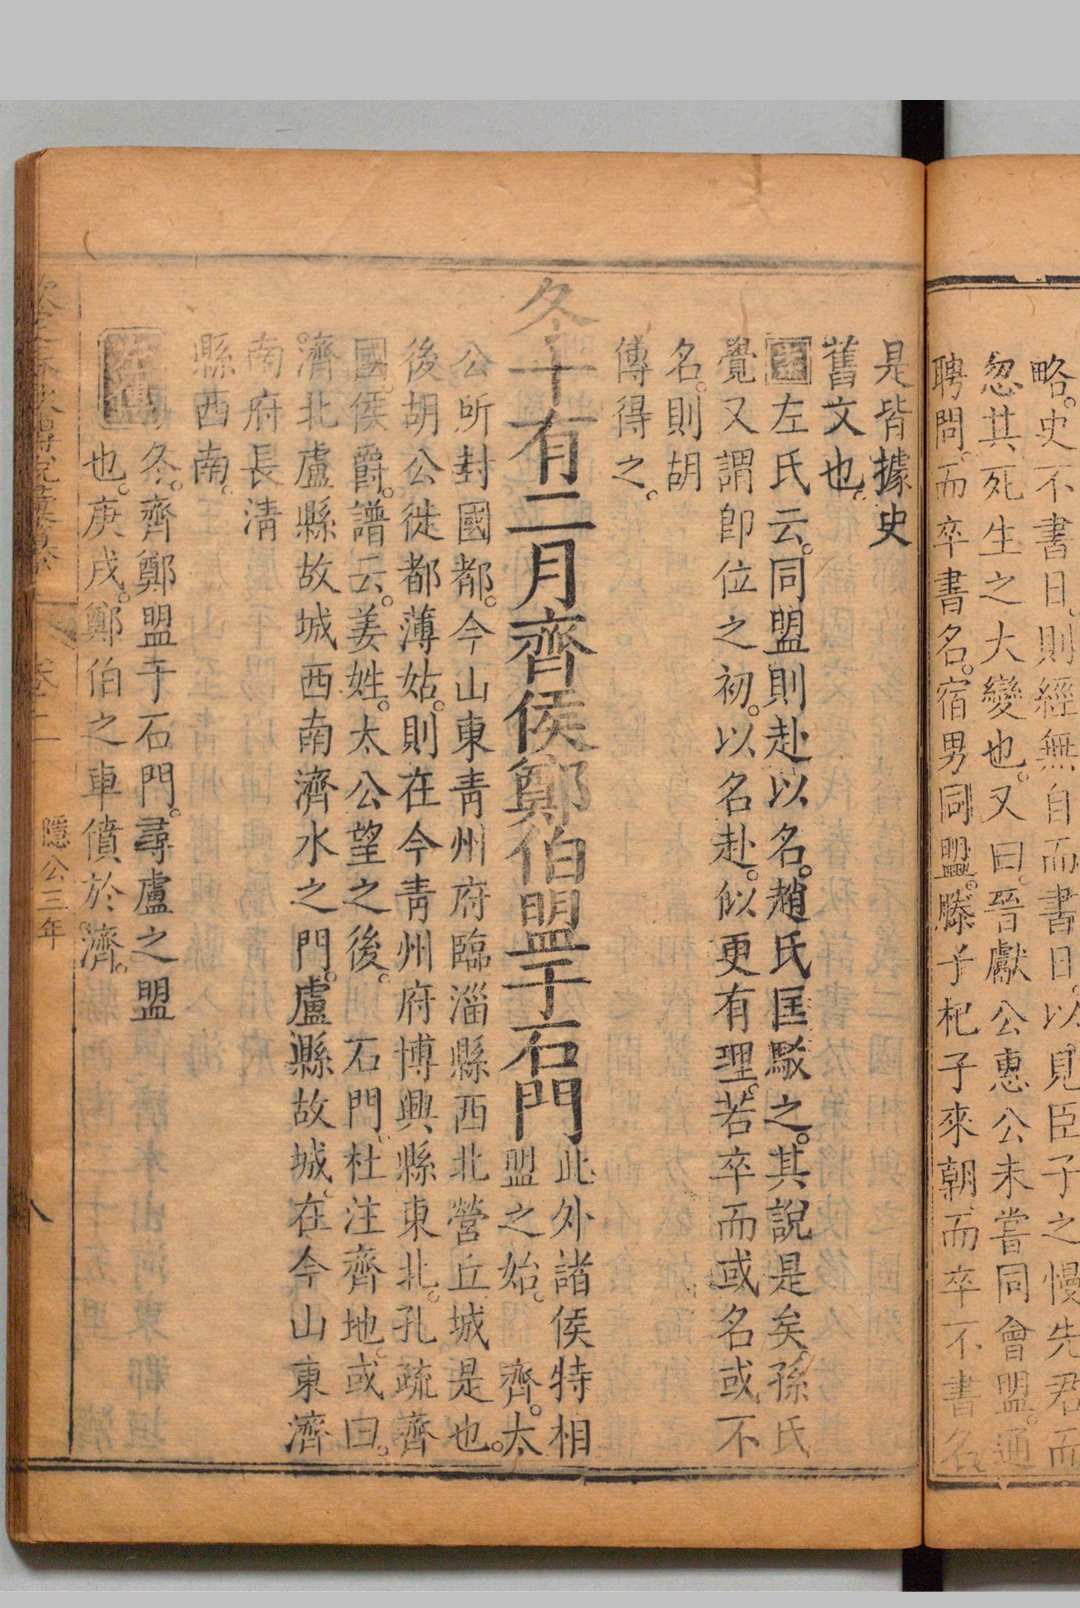 略。史不書日。則經無自而書日。以見臣子之慢先君而
忽其死生之大變也。又曰。晉獻公惠公未嘗同會盟。通
聘問。而卒書名。宿男同盟。滕子杞子來朝。而卒不書名
是皆據史
舊文也。
左氏云。同盟則赴以名。趙氏匡駁之。其說是矣。孫氏
覺又謂卽位之初。以名赴。似更有理。若卒而或名或不
名。則胡
傳得之。
冬十有二月齊侯鄭伯盟于石門
此外諸侯特相
盟之始。 齊。太
公所封國都。今山東靑州府臨淄縣西北營丘城是也。
後胡公徙都薄姑。則在今靑州府博興縣東北。孔疏齊
國。侯爵。譜云。姜姓。太公望之後。 石門。杜注齊地。或曰。
濟北盧縣故城西南濟水之門。盧縣故城。在今山東濟
南府長淸
縣西南。
左傳
冬。齊鄭盟于石門。尋盧之盟
也。庚戌。鄭伯之車僨於濟。
卷二
隱公三年
八